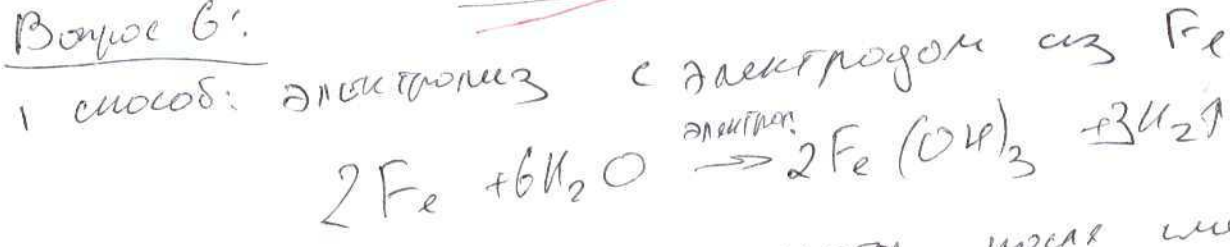 Вопрос 6:
1 способ: электролиз с электродом из Fe
2Fe + 6H₂O →(электрол.) 2Fe(OH)₃ + 3H₂↑
после